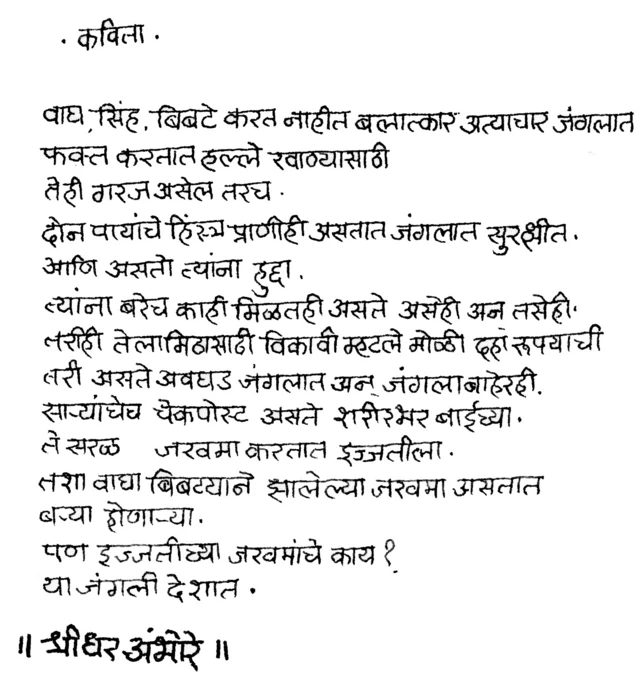 . कविता .
वाघ, सिंह, बिबटे करत नाहीत बलात्कार अत्याचार जंगलात
फक्त करतात हल्ले खाण्यासाठी
तेही गरज असेल तरच .
दोन पायांचे हिंस्त्र प्राणीही असतात जंगलात सुरक्षीत .
आणि असतो त्यांना हुद्दा .
त्यांना बरेच काही मिळतही असते असेही अन् तसेही .
तरीही तेलामिठासाठी विकावी म्हटले मोळी दहा रूपयाची
तरी असते अवघड जंगलात अन् जंगलाबाहेरही .
साऱ्यांचेच चेकपोस्ट असते शरीरभर बाईच्या .
ते सरळ जखमा करतात इज्जतीला .
तशा वाघा बिबटयाने झालेल्या जखमा असतात
बऱ्या होणाऱ्या .
पण इज्जतीच्या जखमांचे काय ?
या जंगली देशात .
॥ श्रीधर अंभोरे ॥